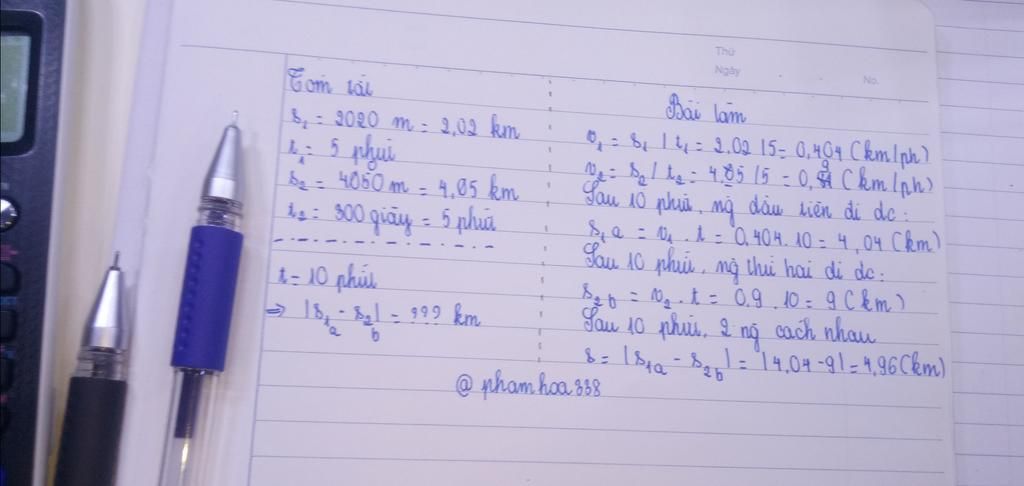 Thứ
Ngày
No.
Tóm tắt
s₁ = 2020 m = 2,02 km
t₁ = 5 phút
s₂ = 4050 m = 4,05 km
t₂ = 300 giây = 5 phút
t = 10 phút
=> |s₁ₐ - s₂b| = ??? km
Bài làm
v₁ = s₁ / t₁ = 2,02 / 5 = 0,404 (km/ph)
v₂ = s₂ / t₂ = 4,05 / 5 = 0,9 (km/ph)
Sau 10 phút, ng đầu tiên đi dc:
s₁ₐ = v₁ . t = 0,404 . 10 = 4,04 (km)
Sau 10 phút, ng thứ hai đi dc:
s₂b = v₂ . t = 0,9 . 10 = 9 (km)
Sau 10 phút, 2 ng cách nhau
s = |s₁ₐ - s₂b| = |4,04 - 9| = 4,96 (km)
@phamhoa338